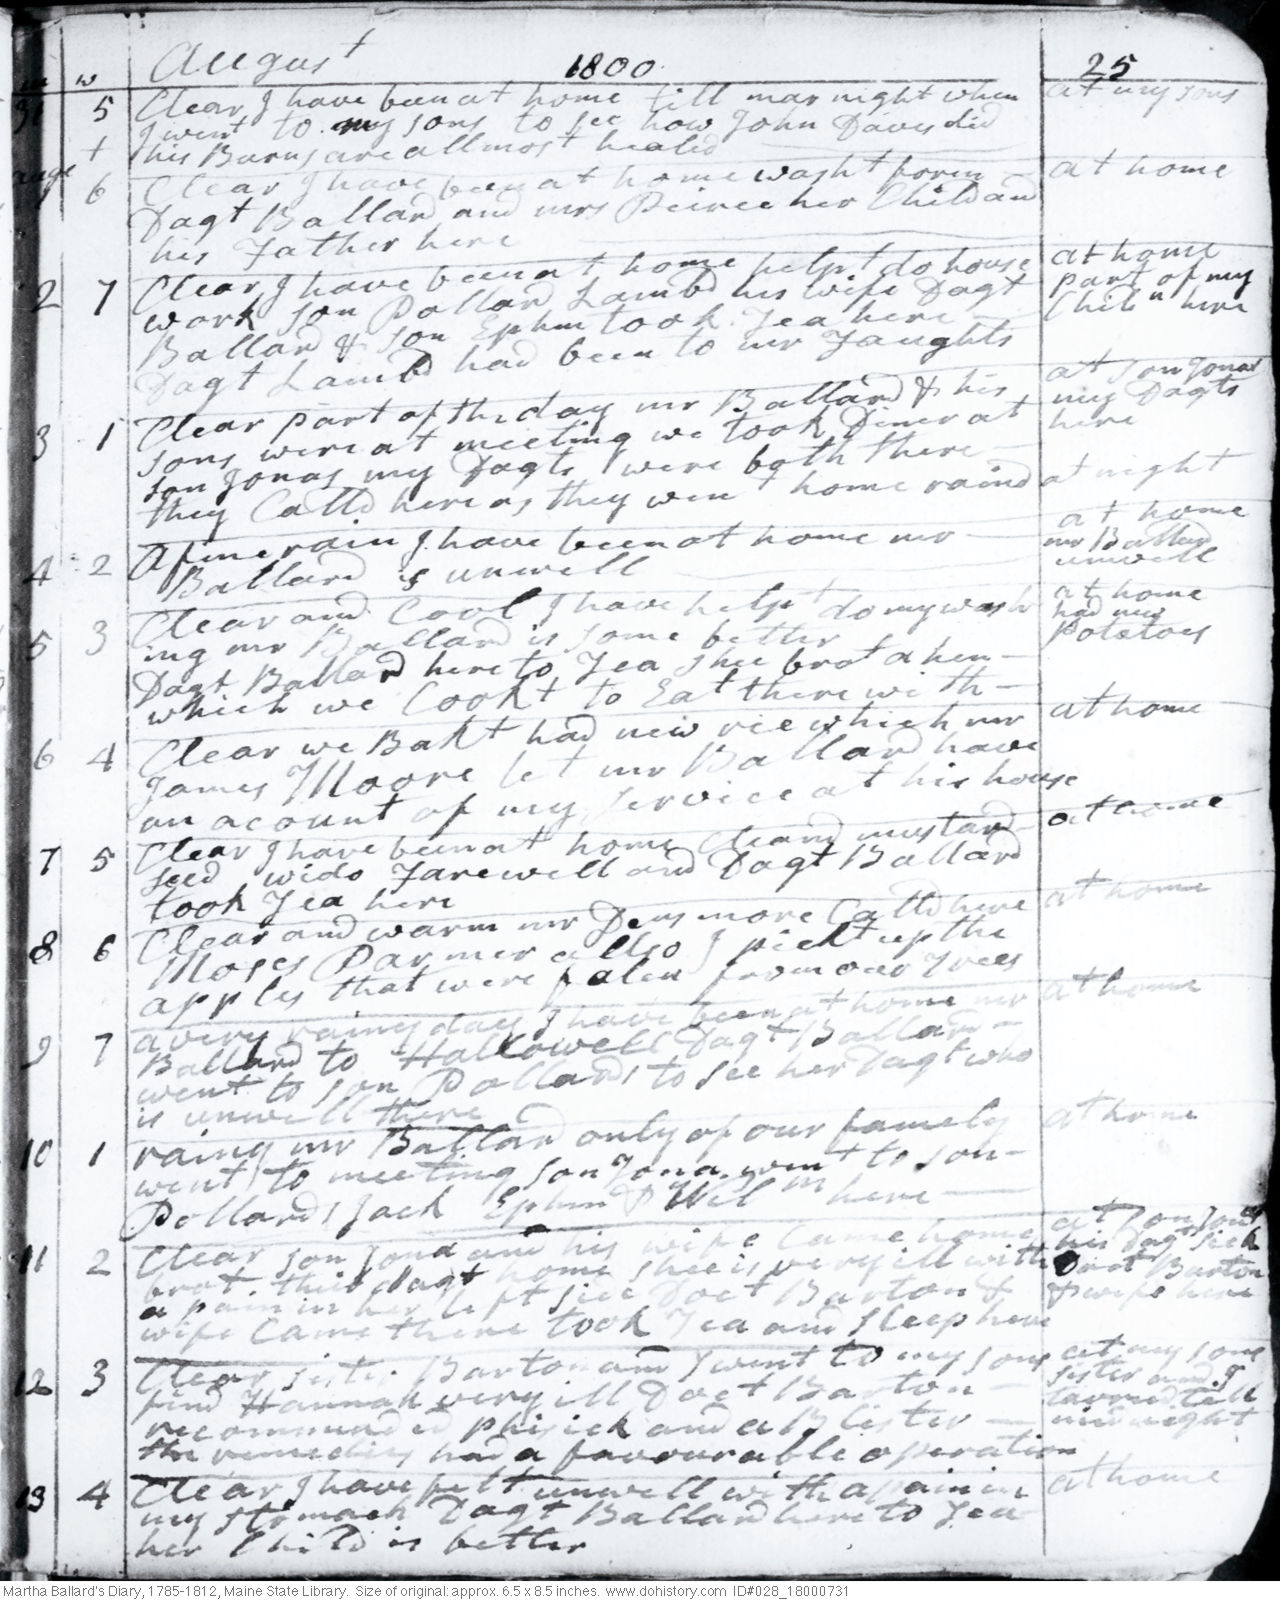 m w August 1800 25
31 5 Clear I have been at home till near night when at my sons
I went to my sons to see how John Daves did
+ his Burns are allmost healed
augt
1 6 Clear I have been at home washt foren at home
Dagt Ballard and mrs Peirce her Child and
his Father here
2 7 Clear I have been at home helpt do house at home
work son Pollard Lambd his wife Dagt part of my
Ballard & son Ephm took Tea here Chiln here
Dagt Lambd had been to mr Faughts
3 1 Clear part of the day mr Ballard & his at son Jonas
sons were at meeting we took Diner at my Dagts
son Jonas my Dagts were both there here
they Calld here as they went home raind at night
4 2 A fine rain I have been at home mr at home
Ballard is unwell mr Ballard
unwell
5 3 Clear and Cool I have helpt do my wash at home
ing mr Ballard is some better had new
Dagt Ballard here to Tea shee brot a hen potatoes
which we Cookt to Eat there with
6 4 Clear we Bakt had new rie which mr at home
James Moore let mr Ballard have
on acount of my Service at his house
7 5 Clear I have been at home Cleand mustard at home
seed wido Farewell and Dagt Ballard
took Tea here
8 6 Clear and warm mr Densmore Calld here at home
Moses Parmer allso I pickt up the
apples that were falen from our Trees
9 7 a very rainy day I have been at home mr at home
Ballard to Hallowell Dagt Ballard
went to son Pollards to see her Dagt who
is unwell there
10 1 rainy mr Ballard only of our famely at home
went to meeting son Jona. went to son
Pollards Jack Ephm & Wilm here
11 2 Clear son Jona and his wife Came home at son Jonas
brot this dagt home shee is very ill with his Dagt sick
a pain in her left side Doct Barton & Doct Barton
wife Came there took Tea and sleep here & wife here
12 3 Clear sister Barton and I went to my sons at my sons
find Hannah very ill Doct Barton sister and I
recommended phisick and a Blister tarried till
the remedies had a favourable operation mid night
13 4 Clear I have felt unwell with a pain in at home
my stomach Dagt Ballard here to Tea
her Child is better
Martha Ballard's Diary, 1785-1812, Maine State Library. Size of original: approx. 6.5 x 8.5 inches. www.dohistory.com ID#028_18000731